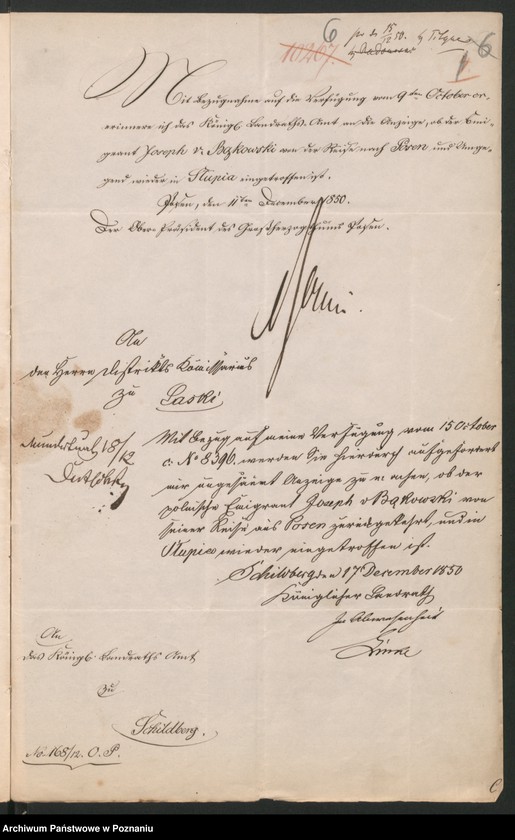 6
10267.
pr. d. 15/12 50.
6
1
Mit Bezugnahme auf die Verfügung vom 9ten October cr.
erinnere ich das Königl. Landraths-Amt an die Anzeige, ob der Emi-
grant Joseph v. Bąkowski von der Reise nach Posen und Umge-
gend wieder in Slupia eingetroffen ist.
Posen, den 11ten December 1850.
Der Ober-Präsident des Großherzogthums Posen.
An
den Herrn Distrikts Kommissarius
zu
Laski
18/12
Mit Bezug auf meine Verfügung vom 15 October
c. No 8396. werden Sie hierdurch aufgefordert
mir ungesäumt Anzeige zu machen, ob der
polnische Emigrant Joseph v Bąkowski von
seiner Reise aus Posen zurückgekehrt, und in
Slupia wieder eingetroffen ist.
Schildberg den 17 December 1850
Königlicher Landrath
In Abwesenheit
An
das Königl. Landraths Amt
zu
Schildberg.
No. 168/12. O. P.
Archiwum Państwowe w Poznaniu